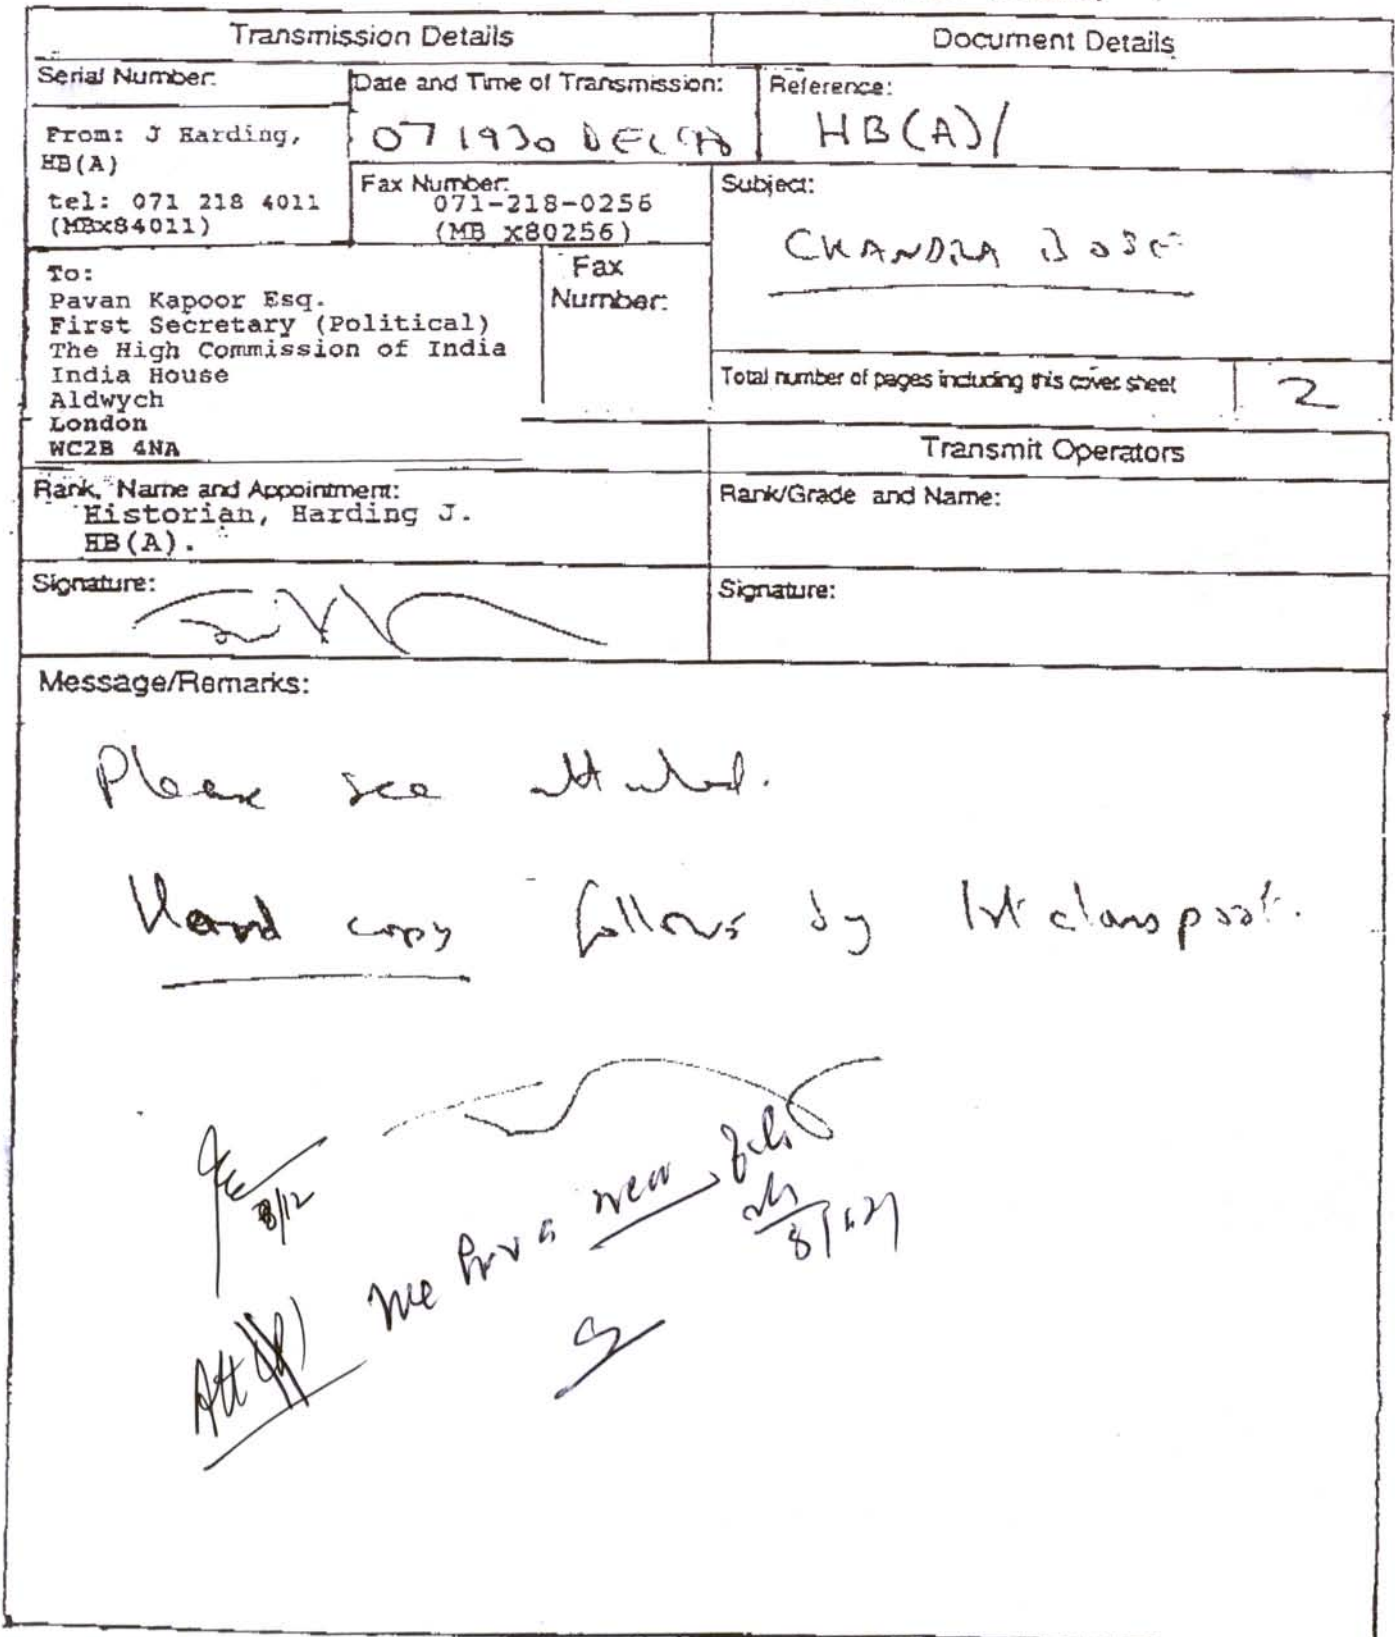 Transmission Details
Document Details
Serial Number:
Date and Time of Transmission:
Reference:
From: J Harding,
HB(A)
tel: 071 218 4011
(MBx84011)
07 1930
HB(A)/
Fax Number:
071-218-0256
(MB x80256)
Subject:
CHANDRA BOSE
To:
Pavan Kapoor Esq.
First Secretary (Political)
The High Commission of India
India House
Aldwych
London
WC2B 4NA
Fax
Number:
Total number of pages including this cover sheet
2
Transmit Operators
Rank, Name and Appointment:
Historian, Harding J.
HB(A).
Rank/Grade and Name:
Signature:
Signature:
Message/Remarks:
Please see attached.
Hard copy follows by 1st class post.
8/12
new
Att